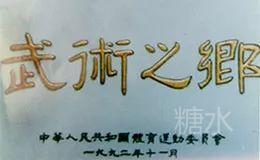 武術之鄉
糖水
中華人民共和國體育運動委員會
一九九二年十一月